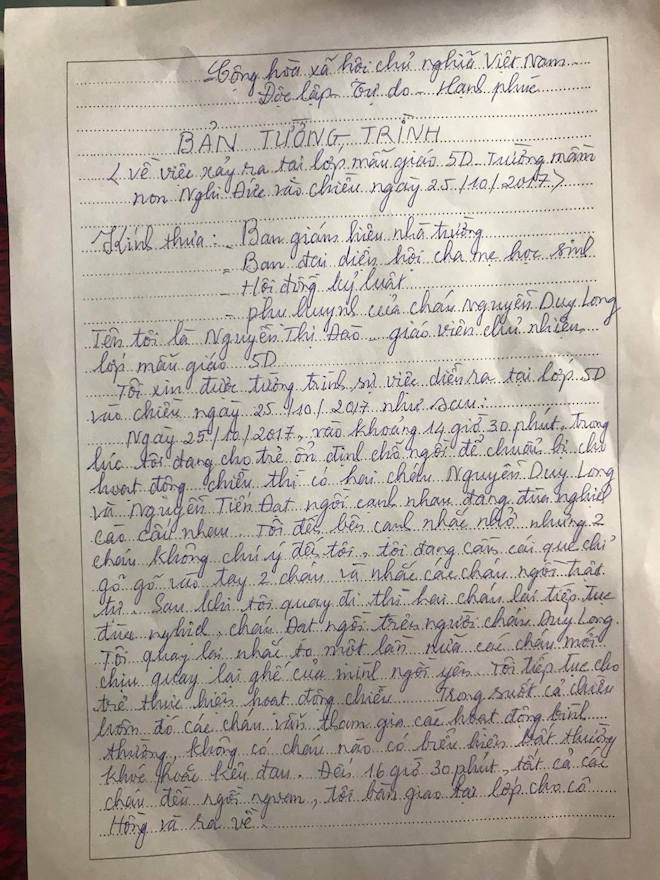 Cộng hòa xã hội chủ nghĩa Việt Nam
Độc lập - Tự do - Hạnh phúc
BẢN TƯỜNG TRÌNH
(Về việc xảy ra tại lớp mẫu giáo 5D trường mầm
non Nghi Đức vào chiều ngày 25/10/2017)
Kính thưa: - Ban giám hiệu nhà trường
- Ban đại diện hội cha mẹ học sinh
- Hội đồng kỷ luật
- phụ huynh của cháu Nguyễn Duy Long
Tên tôi là Nguyễn Thị Đào - giáo viên chủ nhiệm
lớp mẫu giáo 5D
Tôi xin được tường trình sự việc diễn ra tại lớp 5D
vào chiều ngày 25/10/2017 như sau:
Ngày 25/10/2017, vào khoảng 14 giờ 30 phút, trong
lúc tôi đang cho trẻ ổn định chỗ ngồi để chuẩn bị cho
hoạt động chiều thì có hai cháu Nguyễn Duy Long
và Nguyễn Tiến Đạt ngồi cạnh nhau đang đùa nghịch
cào cấu nhau. Tôi đến bên cạnh nhắc nhở nhưng 2
cháu không chú ý đến tôi, tôi đang cầm cái que chỉ
gỗ gõ vào tay 2 cháu và nhắc các cháu ngồi trật
tự. Sau khi tôi quay đi thì hai cháu lại tiếp tục
đùa nghịch, cháu Đạt ngồi trên người cháu Duy Long.
Tôi quay lại nhắc to một lần nữa các cháu mới
chịu quay lại ghế của mình ngồi yên. Tôi tiếp tục cho
trẻ thực hiện hoạt động chiều. Trong suốt cả chiều
hôm đó các cháu vẫn tham gia các hoạt động bình
thường, không có cháu nào có biểu hiện bất thường
khóc hoặc kêu đau. Đến 16 giờ 30 phút, tất cả các
cháu đều ngồi ngoan, tôi bàn giao tại lớp cho cô
Hồng và ra về.